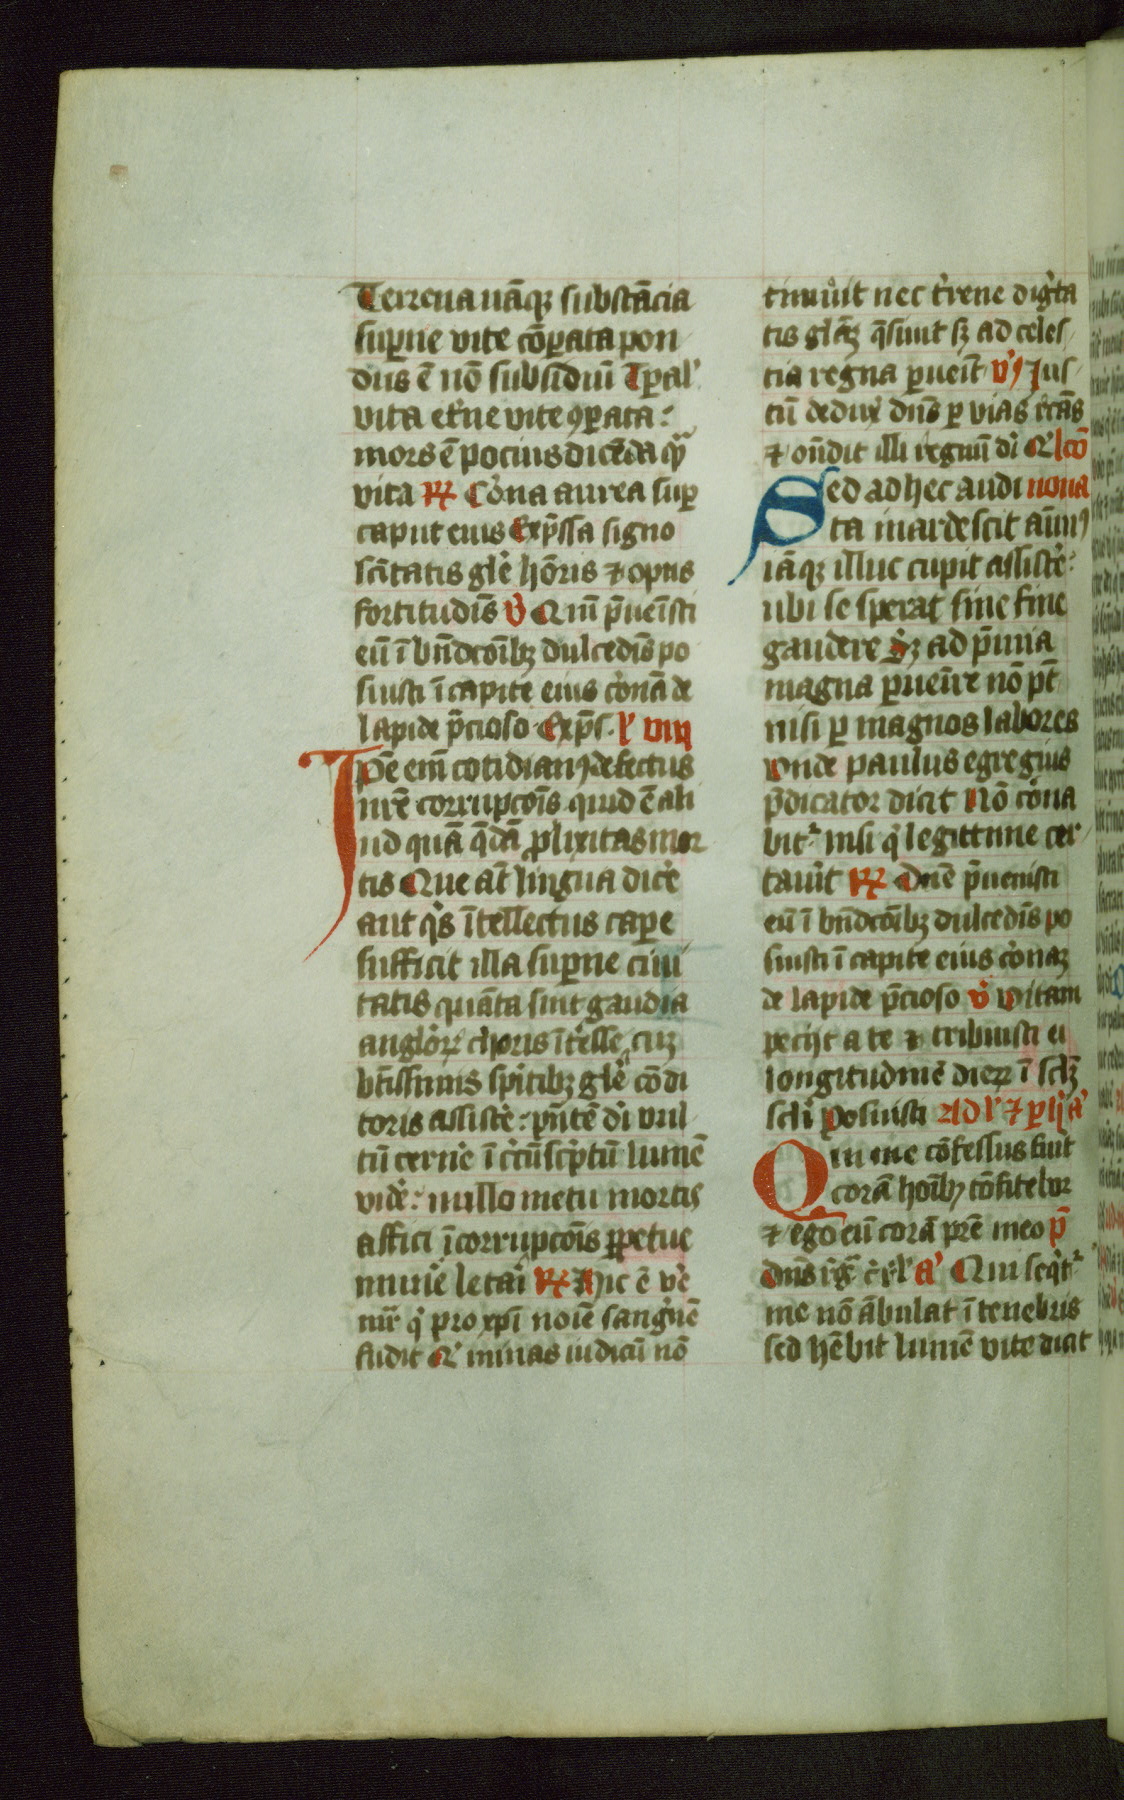 Terrena nāq̄ꝫ substācia
suꝑne vite cōꝑata pon
dus ē nō subsidiū Tꝑal'
vita et̓ne vite ꝯꝑata:
mors ē pocius dicēda qᷓ
vita ℟ Co̓na aurea suꝑ
caput eius Exp̄ssa signo
sc̄itatis gl̓e hōris ⁊ opus
fortitudīs v̓ Qm̄ p̄uenīsti
eū ī bn̄dcōibꝫ dulcedīs po
suisti ī capite eius co̓nā de
lapide p̄cioso Exp̄s. l' viii
Ip̄e em̄ cotidianꝰ defectus
nr̄e corrupcoīs quid ē ali
ud quā q̄dā ꝓlixitas mor
tis Que at̄ lingua dic̓e
aut qͥs ītellectus caꝑe
sufficit illa suꝑne ciui
tatis quāta sint gaudia
anglo̓ꝝ cho̓ris īt̓esse cuꝫ
bt̄issimis spi̓tibꝫ gl̓e cōdi
toris assist̓e: pn̄tē dī vul
tū cern̓e īc̓cūsc̓ptū lumē
vid̓e: nullo metu mortis
affici īcorrupcoīs ꝑpetue
mun̓e letari ℟ Hic ē ve̓
mr̄ qͥ pro xp̄i noīe sangͥnē
fudit Qͥ minas iudicū nō
timuit nec t̓rene digͥta
tis gl̄aꝫ q̄siuit sꝫ ad celes
tia regna ꝑueīt vꝰ Jus
tū deduxͭ dn̄s ꝑ vias r̄cās
⁊ on̄dit illi regnū dī Qͥ lcō
Sed ad hec audi nona
ta inardescit aīmꝰ
iāqꝫ illuc cupit assist̓e:
ubi se sperat sine fine
gaudere Sꝫ ad p̄mia
magna ꝑuenīre nō pt̄
nisi ꝑ magnos labores
vnde paulus egregius
p̄dicator dicit Nō co̓na
bitᷣ nisi qͥ legittime cer
tau̓it ℟ Dn̄e p̄uenisti
eū ī bn̄dcōibꝫ dulcedīs po
suisti ī capite eius co̓naꝫ
de lapide p̄cioso v̓ Vitam
pecijt a te ⁊ tribuisti ei
longitudinē dieꝝ ī sc̄lꝫ
sc̄li Posuisti Ad l' ⁊ ꝑ hͦ a'
Qui me cōfessus fuit
corā hoībꝫ cōfitebor
⁊ ego eū corā pr̄e meo p̄
Dn̄s rg̅ c̓r̓l' a' Qui seqͥtᷣ
me nō ābulat ī tenebris
sed hēbit lumē vite dicit